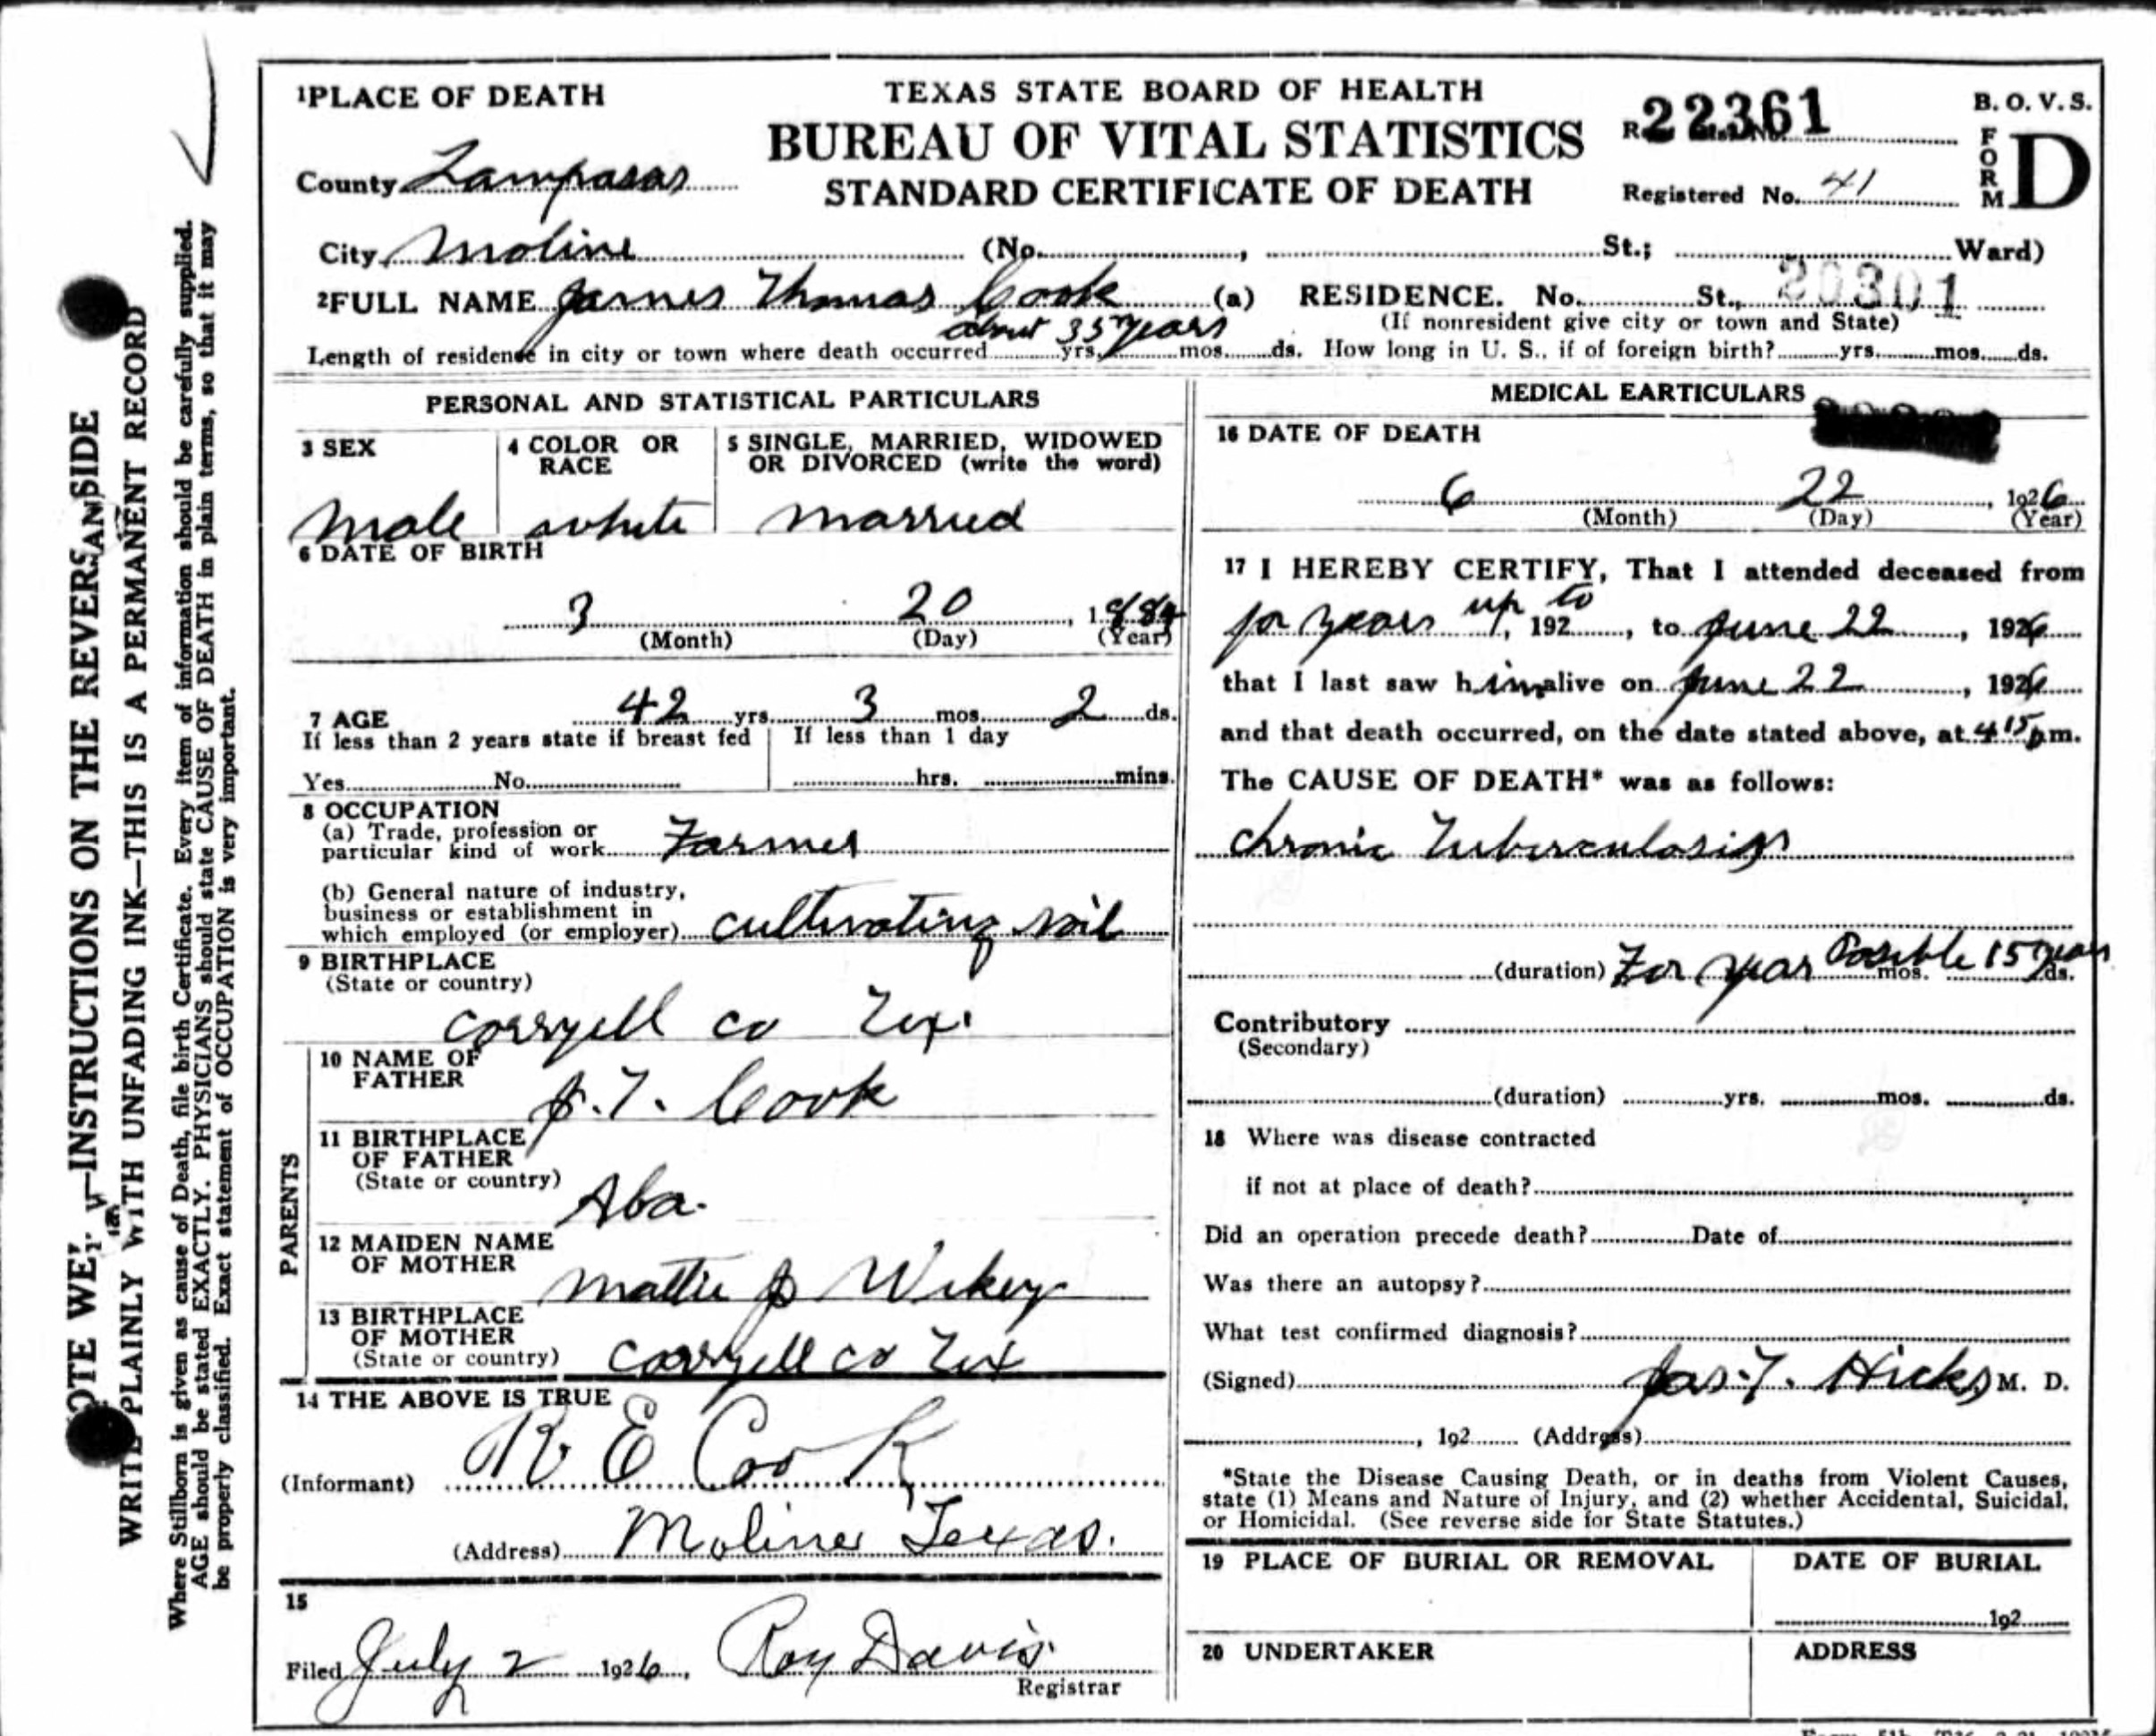 1PLACE OF DEATH
TEXAS STATE BOARD OF HEALTH
BUREAU OF VITAL STATISTICS
STANDARD CERTIFICATE OF DEATH
22361
B. O. V. S.
FORM D
County Lampasas
Registered No. 41
City Moline (No. , St.; Ward)
2FULL NAME James Thomas Cook (a) RESIDENCE. No. St., 20301
(If nonresident give city or town and State)
about 35 years
Length of residence in city or town where death occurred yrs. mos. ds. How long in U. S., if of foreign birth? yrs. mos. ds.
PERSONAL AND STATISTICAL PARTICULARS
3 SEX
4 COLOR OR RACE
5 SINGLE, MARRIED, WIDOWED
OR DIVORCED (write the word)
Male white married
6 DATE OF BIRTH
3 20 , 1884
(Month) (Day) (Year)
7 AGE 42 yrs. 3 mos. 2 ds.
If less than 2 years state if breast fed If less than 1 day
Yes No hrs. mins.
8 OCCUPATION
(a) Trade, profession or
particular kind of work Farmer
(b) General nature of industry,
business or establishment in
which employed (or employer) cultivating soil
9 BIRTHPLACE
(State or country)
Corryell co Tex.
PARENTS
10 NAME OF
FATHER
J. T. Cook
11 BIRTHPLACE
OF FATHER
(State or country)
Aba.
12 MAIDEN NAME
OF MOTHER
Mattie
13 BIRTHPLACE
OF MOTHER
(State or country) Corryell co Tex
14 THE ABOVE IS TRUE
(Informant) R E Cook
(Address) Moline Texas.
15
Filed July 2 1926, Roy Davis
Registrar
MEDICAL EARTICULARS
16 DATE OF DEATH
6 22 , 1926
(Month) (Day) (Year)
17 I HEREBY CERTIFY, That I attended deceased from
for years up to , 192 , to June 22 , 1926
that I last saw him alive on June 22 , 1926
and that death occurred, on the date stated above, at 4 15 pm.
The CAUSE OF DEATH* was as follows:
Chronic Tuberculosis
(duration) For year Possible mos. 15 years ds.
Contributory
(Secondary)
(duration) yrs. mos. ds.
18 Where was disease contracted
if not at place of death?
Did an operation precede death? Date of
Was there an autopsy?
What test confirmed diagnosis?
(Signed) Jas. T. Hicks M. D.
, 192 (Address)
*State the Disease Causing Death, or in deaths from Violent Causes,
state (1) Means and Nature of Injury, and (2) whether Accidental, Suicidal,
or Homicidal. (See reverse side for State Statutes.)
19 PLACE OF BURIAL OR REMOVAL
DATE OF BURIAL
192
20 UNDERTAKER
ADDRESS
INSTRUCTIONS ON THE REVERSE SIDE
WRITE PLAINLY WITH UNFADING INK—THIS IS A PERMANENT RECORD
Where Stillborn is given as cause of Death, file birth Certificate. Every item of information should be carefully supplied.
AGE should be stated EXACTLY. PHYSICIANS should state CAUSE OF DEATH in plain terms, so that it may
be properly classified. Exact statement of OCCUPATION is very important.